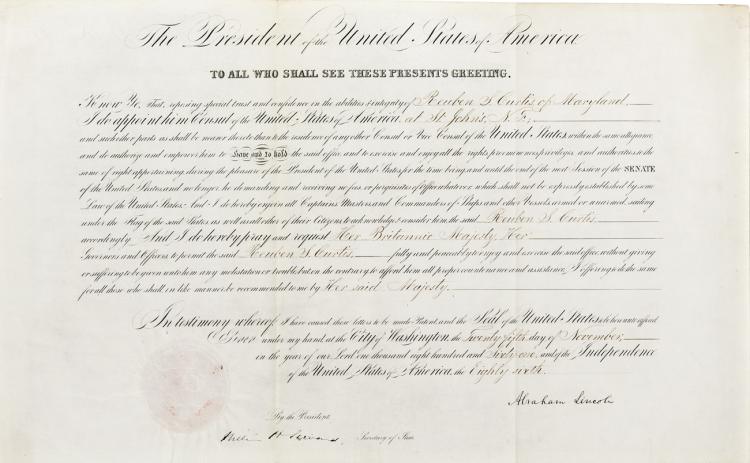 The President of the United States of America
TO ALL WHO SHALL SEE THESE PRESENTS GREETING.
Know Ye, That, reposing special trust and confidence in the abilities & integrity of Reuben S. Curtis of Maryland
I do appoint him Consul of the United States of America, at St Johns, N. F.,
and such other parts as shall be nearer thereto than to the residence of any other Consul or Vice Consul of the United States, within the same allegiance,
and do authorize and empower him to have and to hold the said office, and to exercise and enjoy all the rights, preeminences, privileges and authorities to the
same of right appertaining, during the pleasure of the President of the United States, for the time being and until the end of the next Session of the SENATE
of the United States, and no longer, he demanding and receiving no fees or perquisites of Office whatever, which shall not be expressly established by some
Law of the United States. And I do hereby enjoin all Captains, Masters and Commanders of Ships and other Vessels, armed or unarmed, sailing
under the Flag of the said States as well as all other of their Citizens to acknowledge & consider him, the said Reuben S. Curtis
accordingly. And I do hereby pray and request Her Britannic Majesty, Her
Governors and Officers to permit the said Reuben S. Curtis fully and peaceably to enjoy and exercise the said office, without giving
or suffering to be given unto him any molestation or trouble, but on the contrary to afford him all proper countenance and assistance; I offering to do the same
for all those who shall in like manner, be recommended to me by Her said Majesty.
In testimony whereof, I have caused these letters to be made Patent, and the Seal of the United States to be hereunto affixed
Given under my hand, at the City of Washington, the Twenty fifth day of November,
in the year of our Lord one thousand eight hundred and Sixty one, and of the Independence
of the United States of America, the Eighty sixth.
Abraham Lincoln
By the President.
William H. Seward Secretary of State.